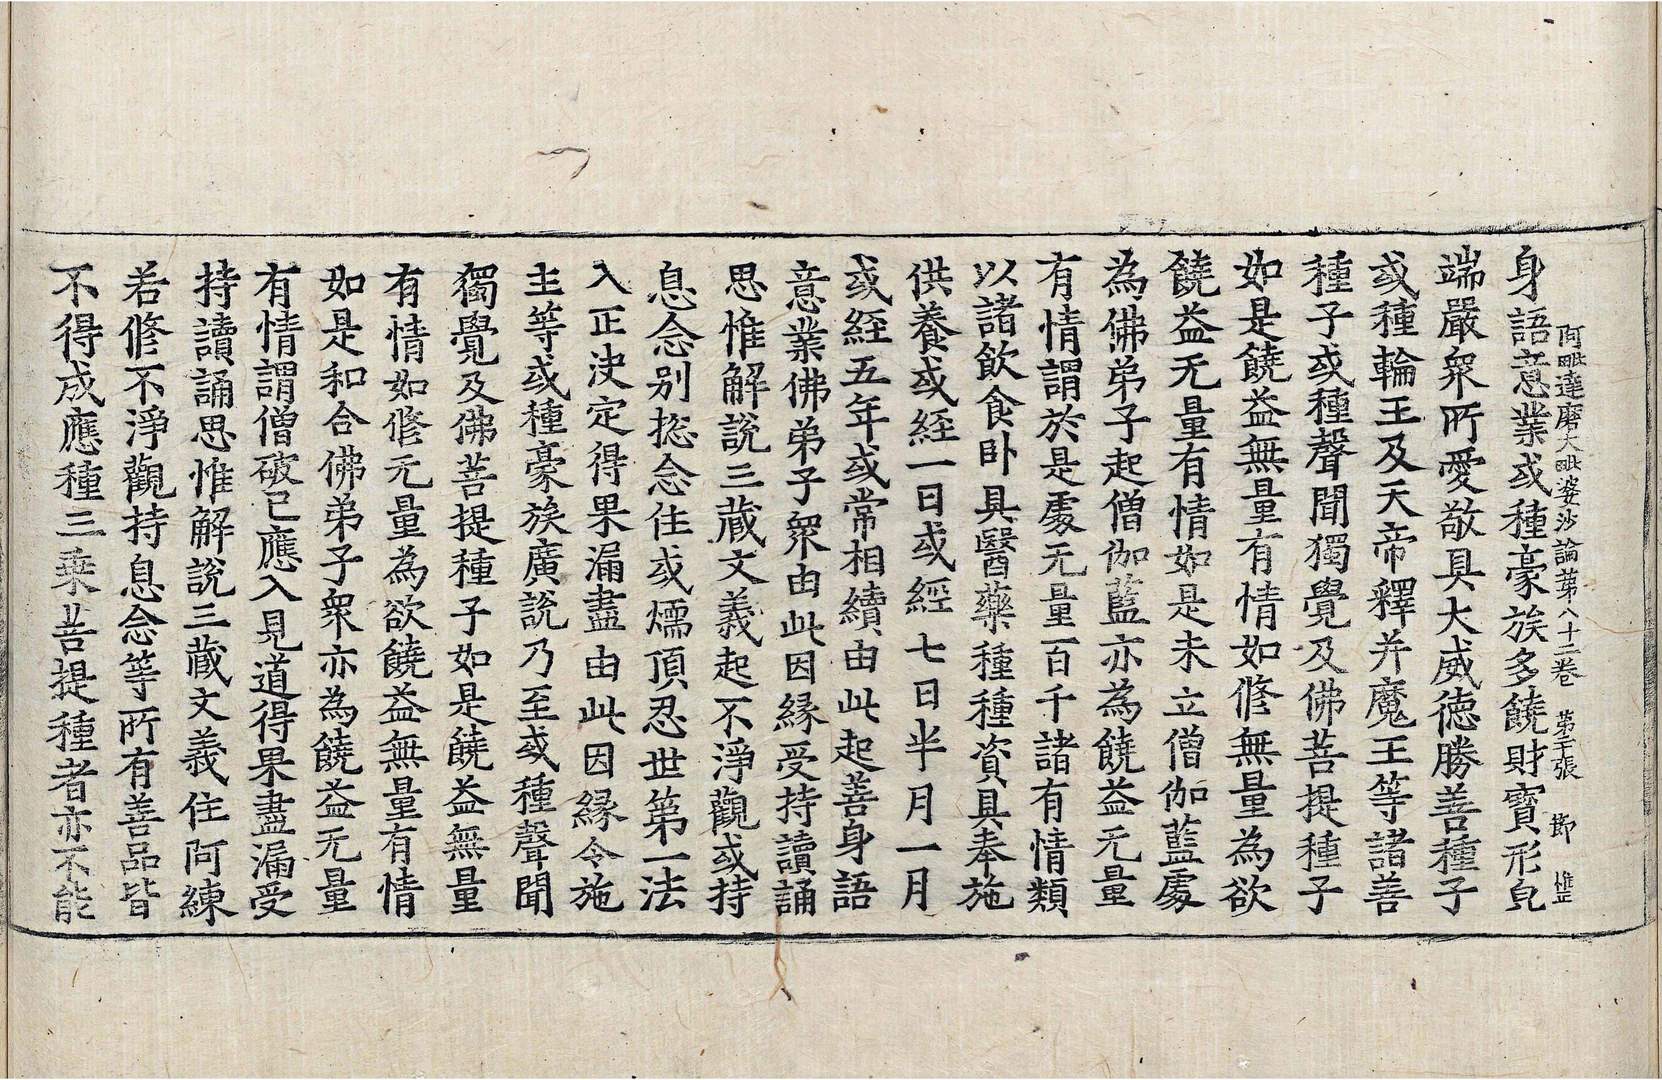 阿毗達磨大毗婆沙論第八十二卷 第二十張 節 進
身語意業或種豪族多饒財寶形皃
端嚴衆所愛敬具大威德勝善種子
或種輪王及天帝釋并魔王等諸善
種子或種聲聞獨覺及佛菩提種子
如是饒益無量有情如修無量為欲
饒益无量有情如是未立僧伽藍處
為佛弟子起僧伽藍亦為饒益无量
有情謂於是處无量百千諸有情類
以諸飲食卧具醫藥種種資具奉施
供養或經一日或經七日半月一月
或經五年或常相續由此起善身語
意業佛弟子衆由此因緣受持讀誦
思惟解說三藏文義起不淨觀或持
息念别揔念住或煗頂忍世第一法
入正決定得果漏盡由此因緣令施
主等或種豪族廣說乃至或種聲聞
獨覺及佛菩提種子如是饒益無量
有情如修无量為欲饒益無量有情
如是和合佛弟子衆亦為饒益无量
有情謂僧破已應入見道得果盡漏受
持讀誦思惟解說三藏文義住阿練
若修不淨觀持息念等所有善品皆
不得成應種三乘菩提種者亦不能